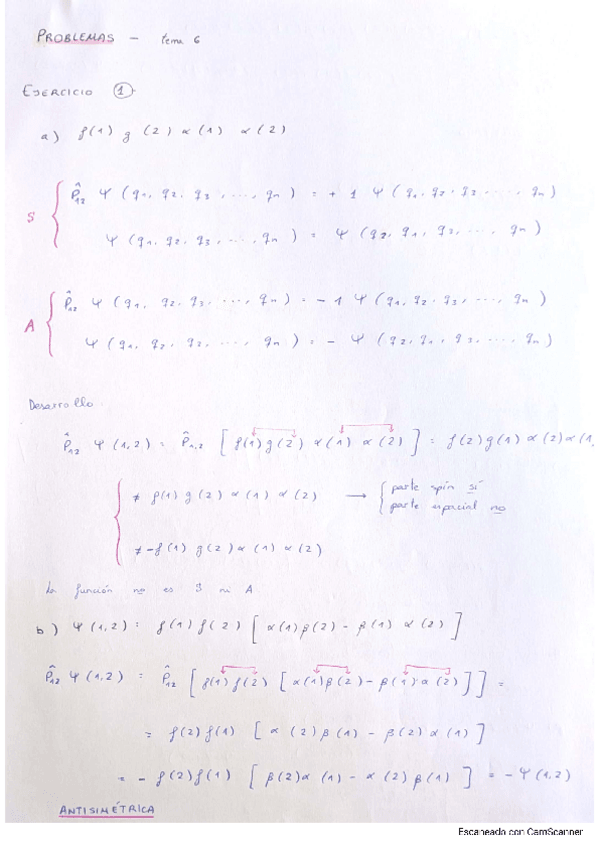 PROBLEMAS - tema 6
EJERCICIO 1
a) f(1) g(2) α(1) α(2)
S { P̂12 Ψ(q1, q2, q3, ..., qn) = + 1 Ψ(q1, q2, q3, ..., qn)
Ψ(q1, q2, q3, ..., qn) = Ψ(q2, q1, q3, ..., qn)
A { P̂12 Ψ(q1, q2, q3, ..., qn) = - 1 Ψ(q1, q2, q3, ..., qn)
Ψ(q1, q2, q3, ..., qn) = - Ψ(q2, q1, q3, ..., qn)
Desarrollo
P̂12 Ψ(1,2) = P̂1,2 [f(1)g(2) α(1) α(2)] = f(2)g(1)α(2)α(1
{ ≠ f(1) g(2) α(1) α(2) → { parte spin sí
parte espacial no
≠ -f(1) g(2) α(1) α(2)
La función no es S ni A
b) Ψ(1,2) = f(1) f(2) [α(1)β(2) - β(1) α(2)]
P̂12 Ψ(1,2) = P̂12 [f(1)f(2) [α(1)β(2) - β(1)·α(2)]] =
= f(2)f(1) [α(2)β(1) - β(2)α(1)]
= - f(2)f(1) [β(2)α(1) - α(2)β(1)] = - Ψ(1,2)
ANTISIMÉTRICA
Escaneado con CamScanner